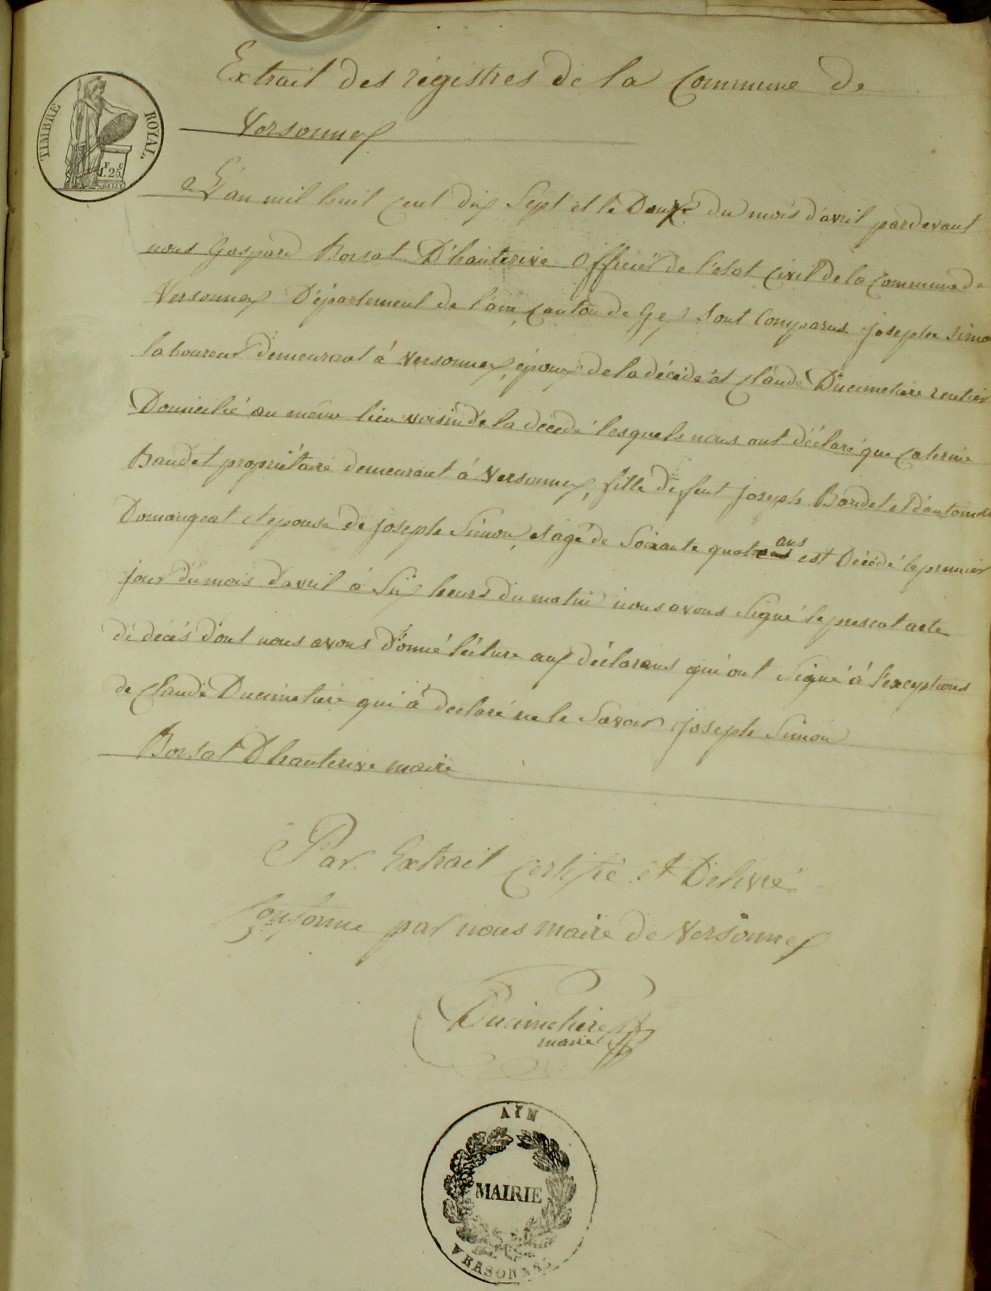 TIMBRE ROYAL
1F. 25C
Extrait des régistres de la Commune de
Versonnex
L'an mil huit cent dix Sept et le Deux du mois d'avril pardevant
nous Gaspard Borsat D'hauterive Officier de l'état civil de la Commune de
Versonnex Département de l'ain, Canton de Gex Sont Comparus joseph Simon
laboureur demeurant à Versonnex, époux de la décédé et Claude Ducimetière rentier
Domicilié au même lieu voisin de la décedé lesquels nous ont déclaré que Caterine
Baudet propriétaire demeurant à Versonnex, fille de feut joseph Baudet et d'antoinette
Domangeat et epouse de joseph Simon, et agé de Soixante quatre ans est Décédé le premier
jour du mois d'avril à Six heurs du matin nous avons Signé le present acte
de décés d'ont nous avons Donné lecture aux déclarans qui ont Signé à l'exceptions
de Claude Ducimetiere qui à déclaré ne le Savoir joseph Simon
Borsat D'hauterive maire
Par Extrait Certifié et Délivré
Conforme par nous maire de Versonnex
Ducimetiere
maire
AIN
MAIRIE
VERSONNEX